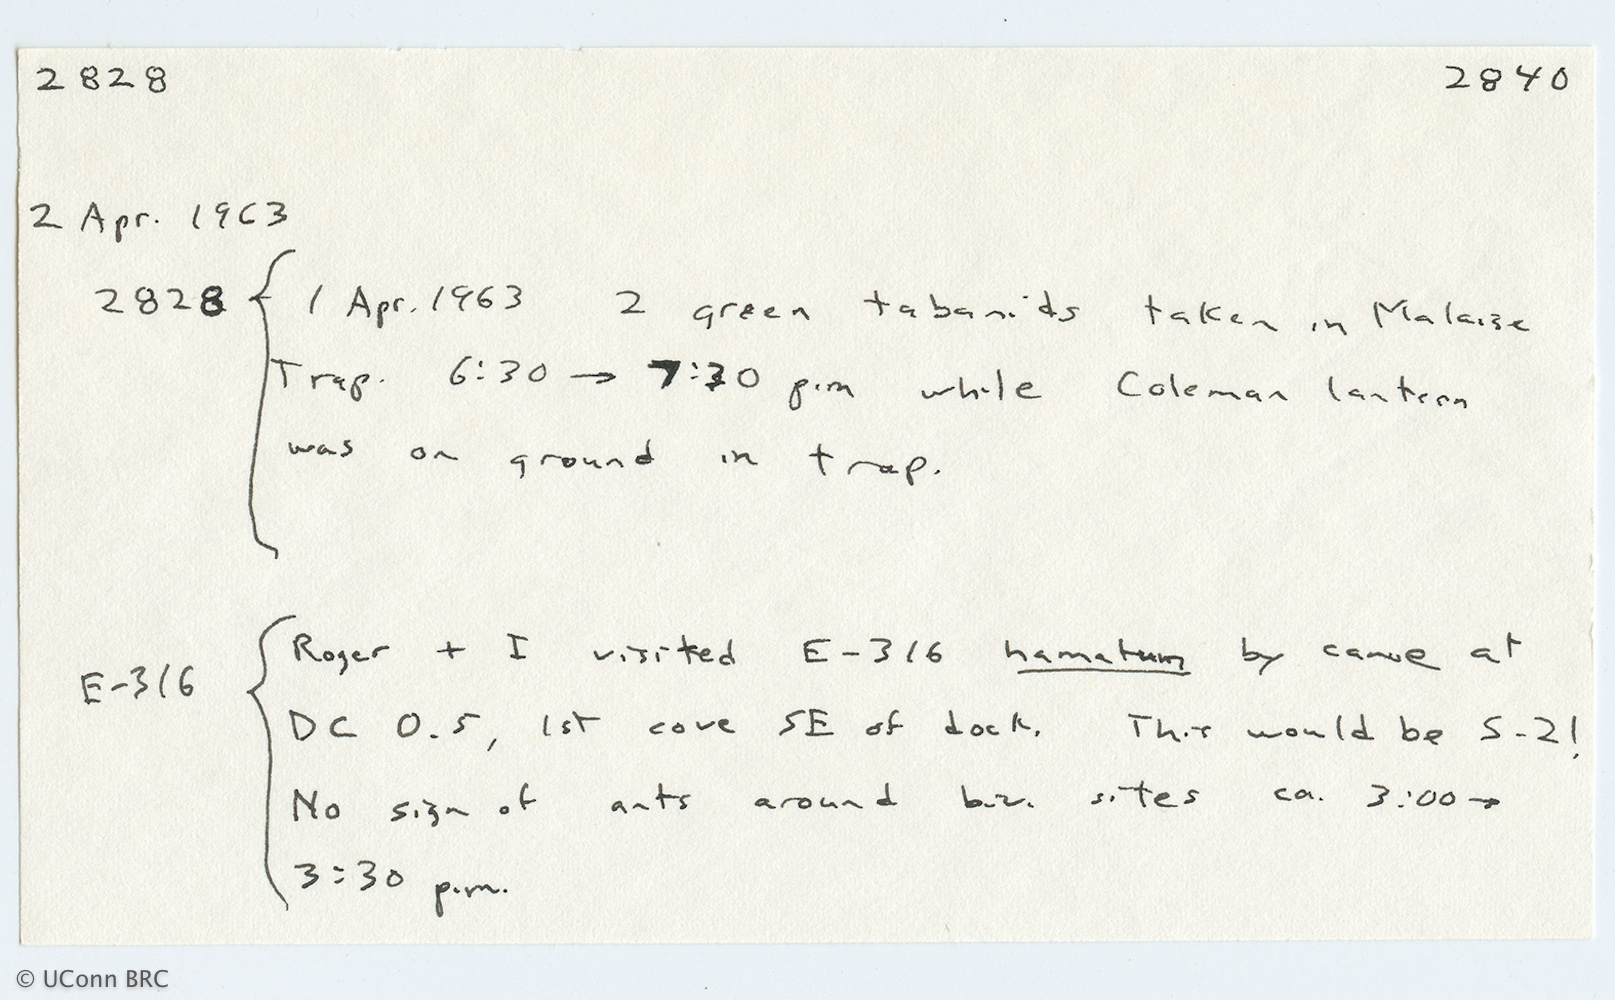 2828 2840
2 Apr. 1963
2828 { 1 Apr. 1963 2 green tabanids taken in Malaise
Trap. 6:30 → 7:30 p.m while Coleman lantern
was on ground in trap.
E-316 { Roger + I visited E-316 hamatum by canoe at
DC 0.5, 1st cove SE of dock. This would be S-2!
No sign of ants around biv. sites ca. 3:00 →
3:30 p.m.
© UConn BRC